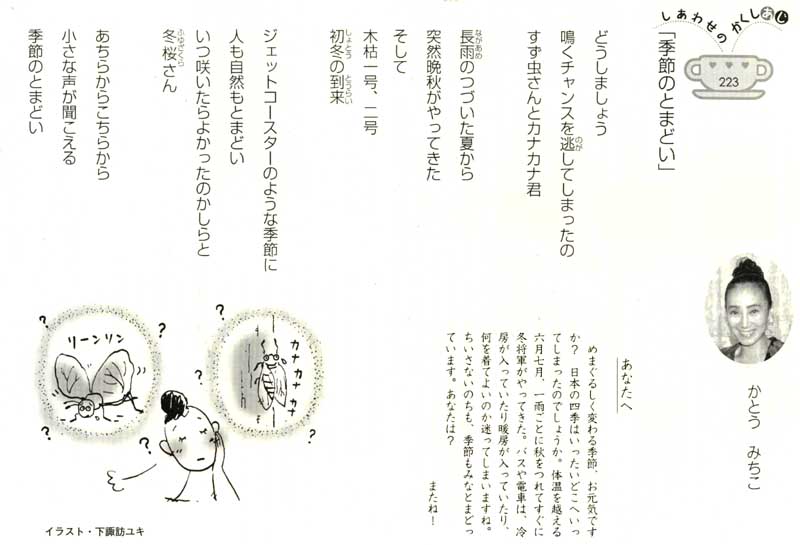 しあわせのかくしあじ
223
「季節のとまどい」
かとう みちこ
どうしましょう
鳴くチャンスを逃してしまったの
すず虫さんとカナカナ君
長雨のつづいた夏から
突然晩秋がやってきた
そして
木枯一号、二号
初冬の到来
ジェットコースターのような季節に
人も自然もとまどい
いつ咲いたらよかったのかしらと
冬桜さん
あちらからこちらから
小さな声が聞こえる
季節のとまどい
あなたへ
めまぐるしく変わる季節、お元気です
か? 日本の四季はいったいどこへいっ
てしまったのでしょうか。体温を越える
六月七月、一雨ごとに秋をつれてすぐに
冬将軍がやってきた。バスや電車は、冷
房が入っていたり暖房が入っていたり、
何を着てよいのか迷ってしまいますね。
ちいさないのちも、季節もみなとまどっ
ています。あなたは?
またね!
カナカナカナ
リーンリン
イラスト・下諏訪ユキ